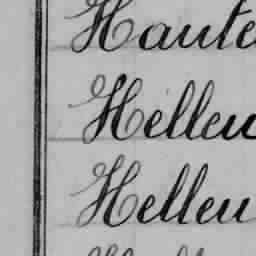 Haute
Helleu
Helleu